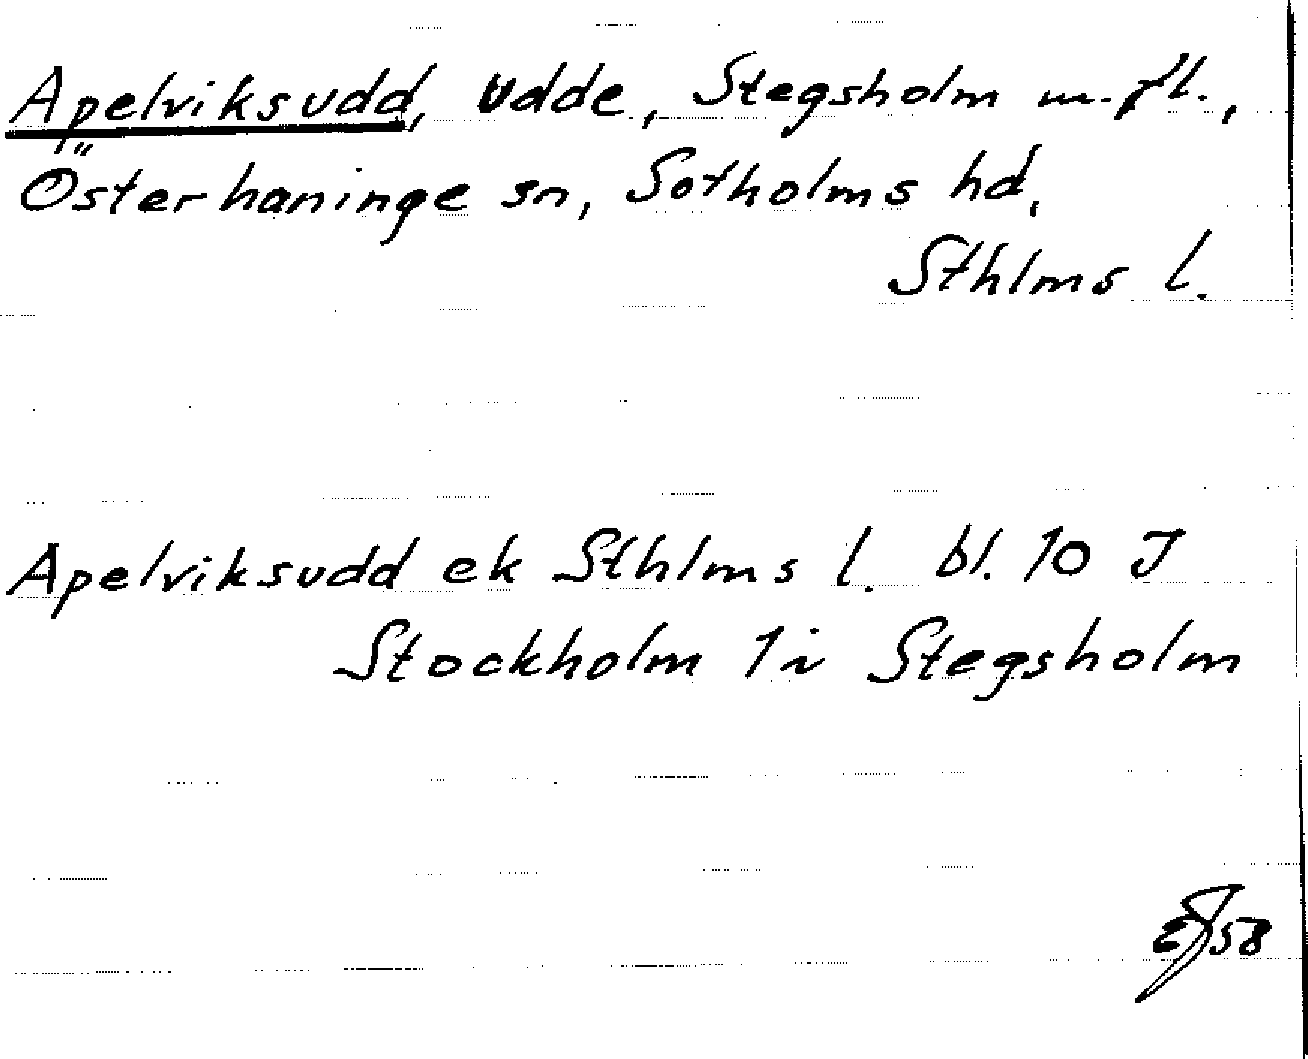 Apelviksudd, udde, Stegsholm m.fl.,
Österhaninge sn, Sotholms hd,
Sthlms l.
Apelviksudd ek Sthlms l. bl. 10 J
Stockholm 1i Stegsholm
58